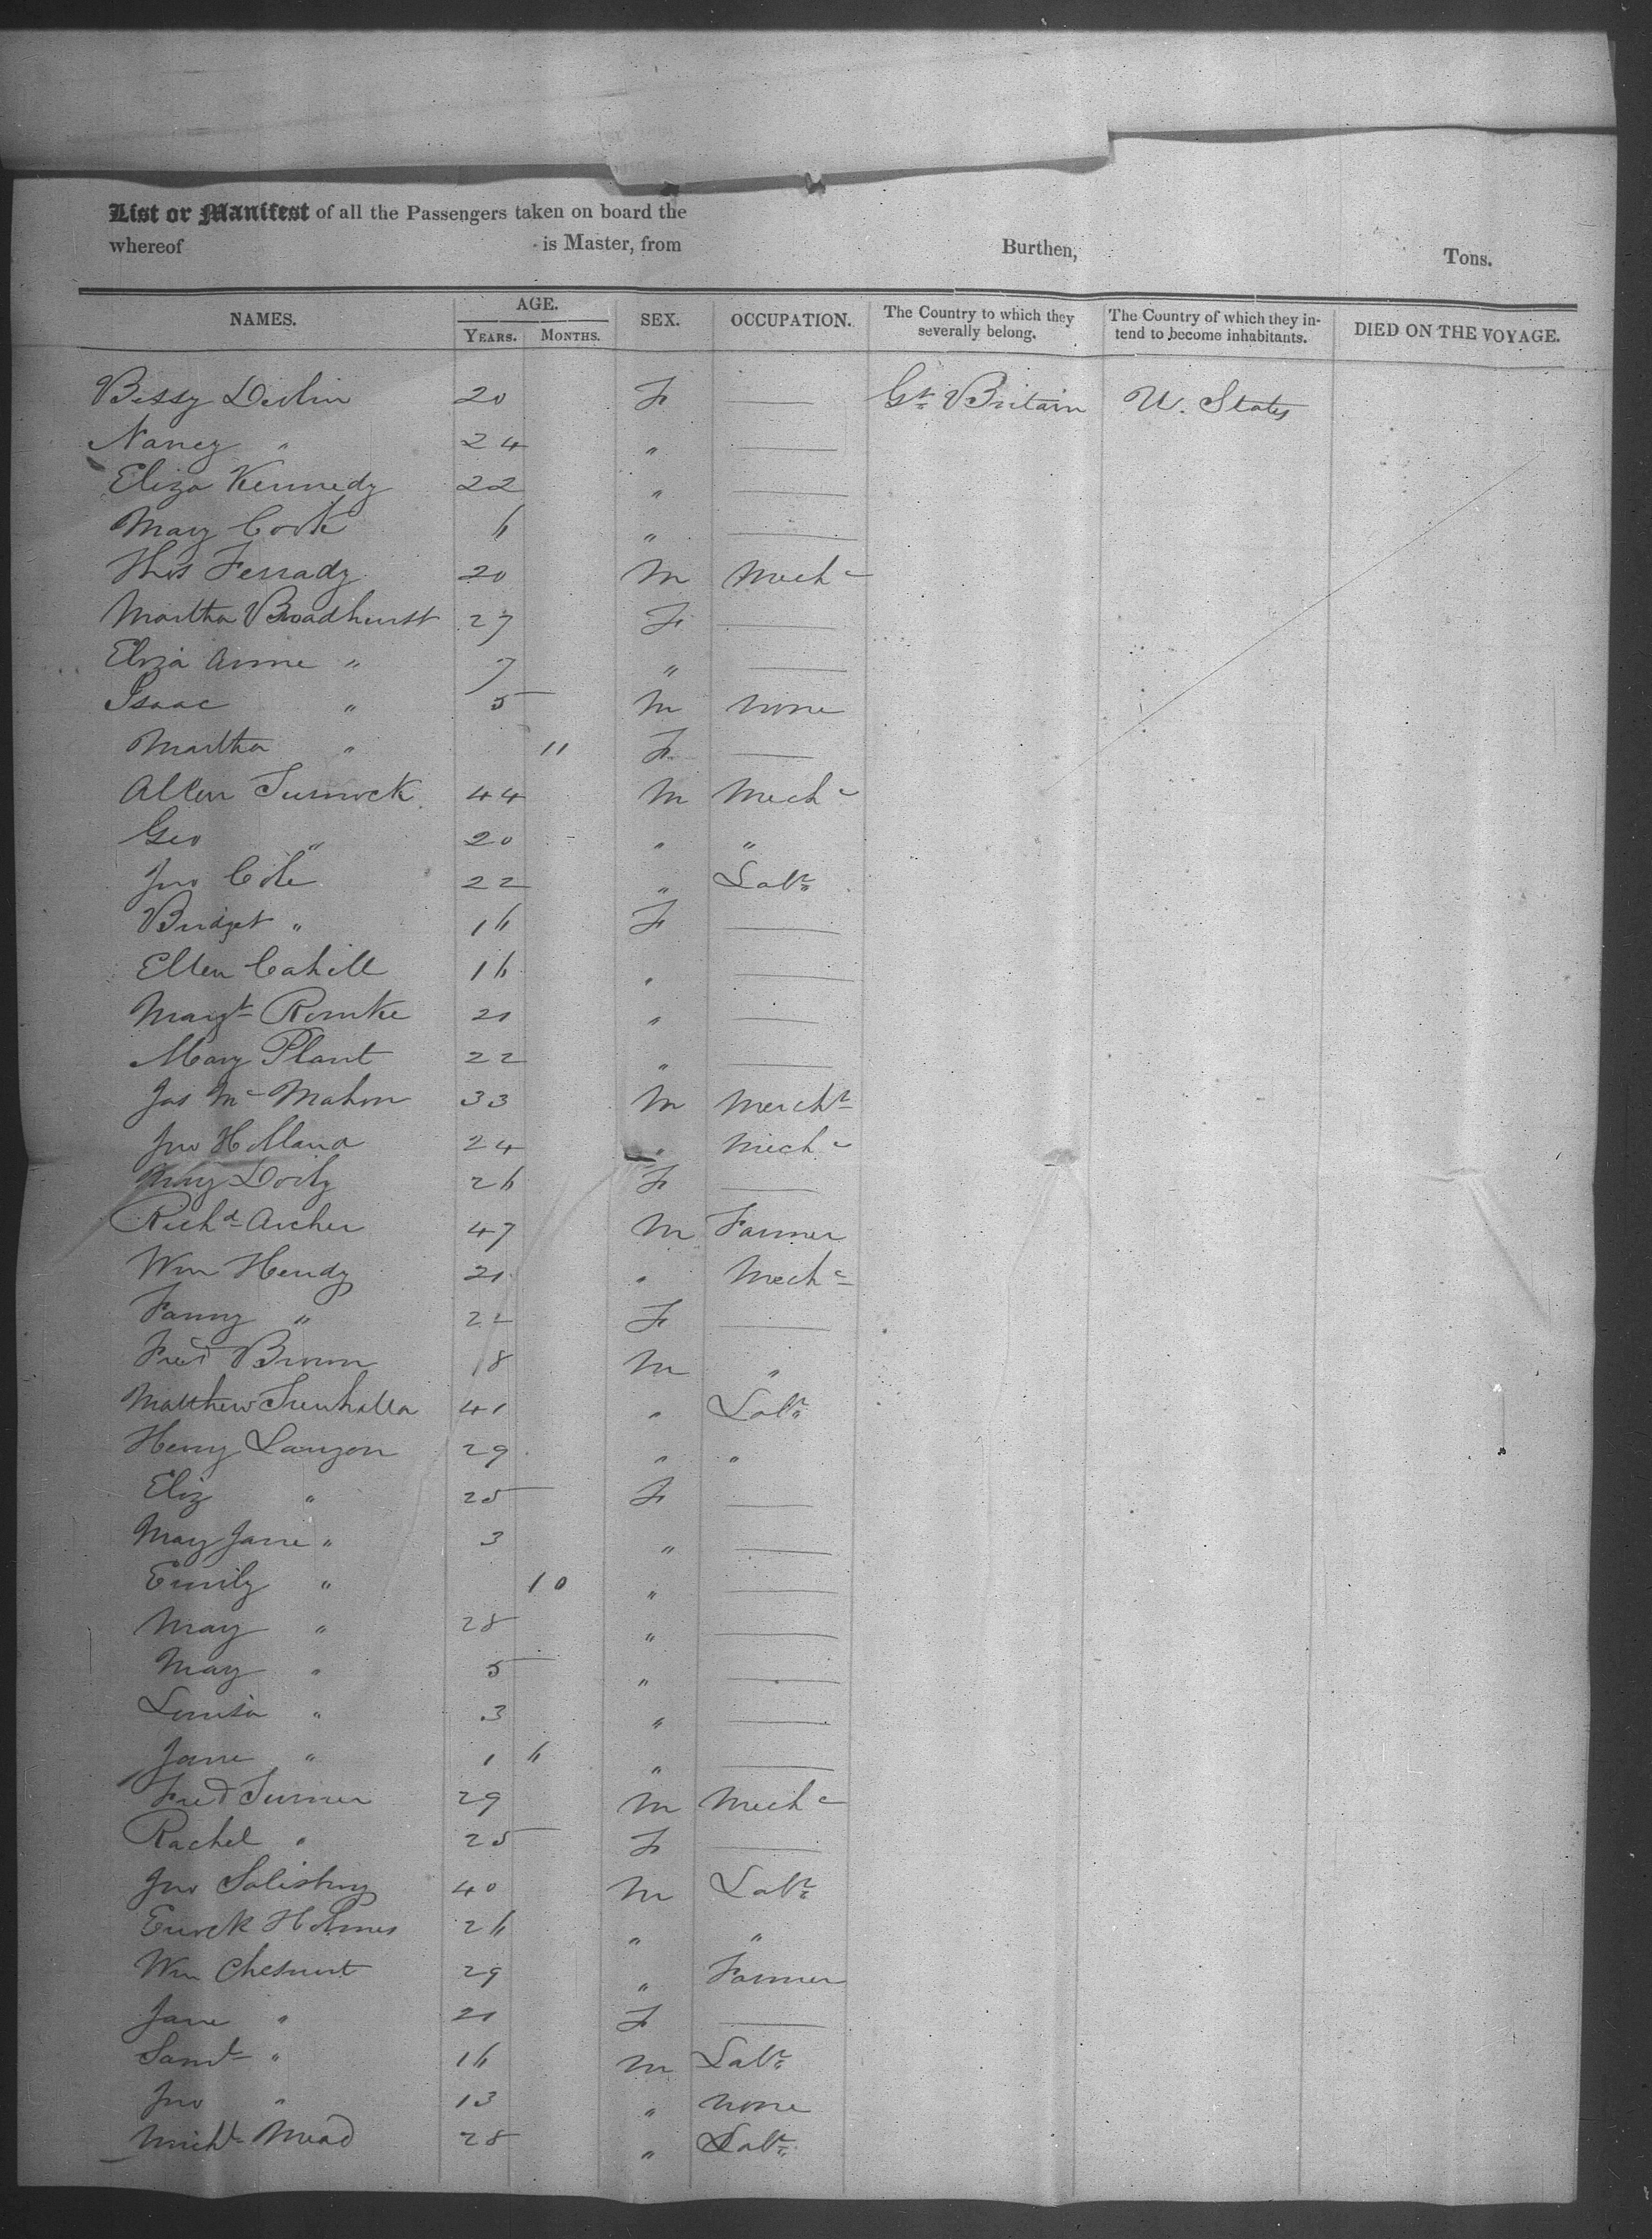 List or Manifest of all the Passengers taken on board the
whereof is Master, from Burthen, Tons.
NAMES. AGE. YEARS. MONTHS. SEX. OCCUPATION. The Country to which they severally belong. The Country of which they intend to become inhabitants. DIED ON THE VOYAGE.
Bessy Devlin 20 F — Gt Britain U. States
Nancy " 24 " —
Eliza Kennedy 22 " —
Mary Cook 6 " —
Thos 20 M Mechc
Martha Broadhurst 27 F —
Eliza Anne " 7 " —
Isaac " 5 M None
Martha " 11 F —
Allen Turnock 44 M Mechc
Geo " 20 " "
Jno Cole 22 " Labr
Bridget " 16 F —
Ellen Cahill 16 " —
Margt Rourke 21 " —
Mary Plant 22 " —
Jas McMahon 33 M Mercht
Jno Holland 24 " Mechc
Mary Doily 26 F —
Richd Archer 47 M Farmer
Wm Hendy 21 " Mechc
Fanny " 22 F —
Fred Brown 18 M "
Matthew 41 " Labr
Henry Lanyon 29 " "
Eliz " 25 F —
Mary Jane " 3 " —
Emily " 10 " —
Mary " 28 " —
Mary " 5 " —
Louisa " 3 " —
Jane " 1 6 " —
Fred Turner 29 M Mechc
Rachel " 25 F —
Jno Salisbury 40 M Labr
Holmes 26 " "
Wm Chesnut 29 " Farmer
Jane " 21 F —
Saml " 16 M Labr
Jno " 13 " None
Michl Mead 28 " Labr